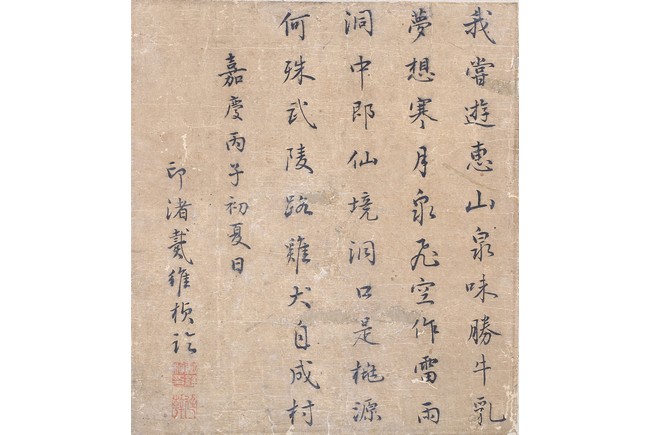 我嘗遊惠山泉味勝牛乳
夢想寒月泉飛空作雷雨
洞中即仙境洞口是桃源
何殊武陵路雞犬自成村
嘉慶丙子初夏日
印渚戴維楨